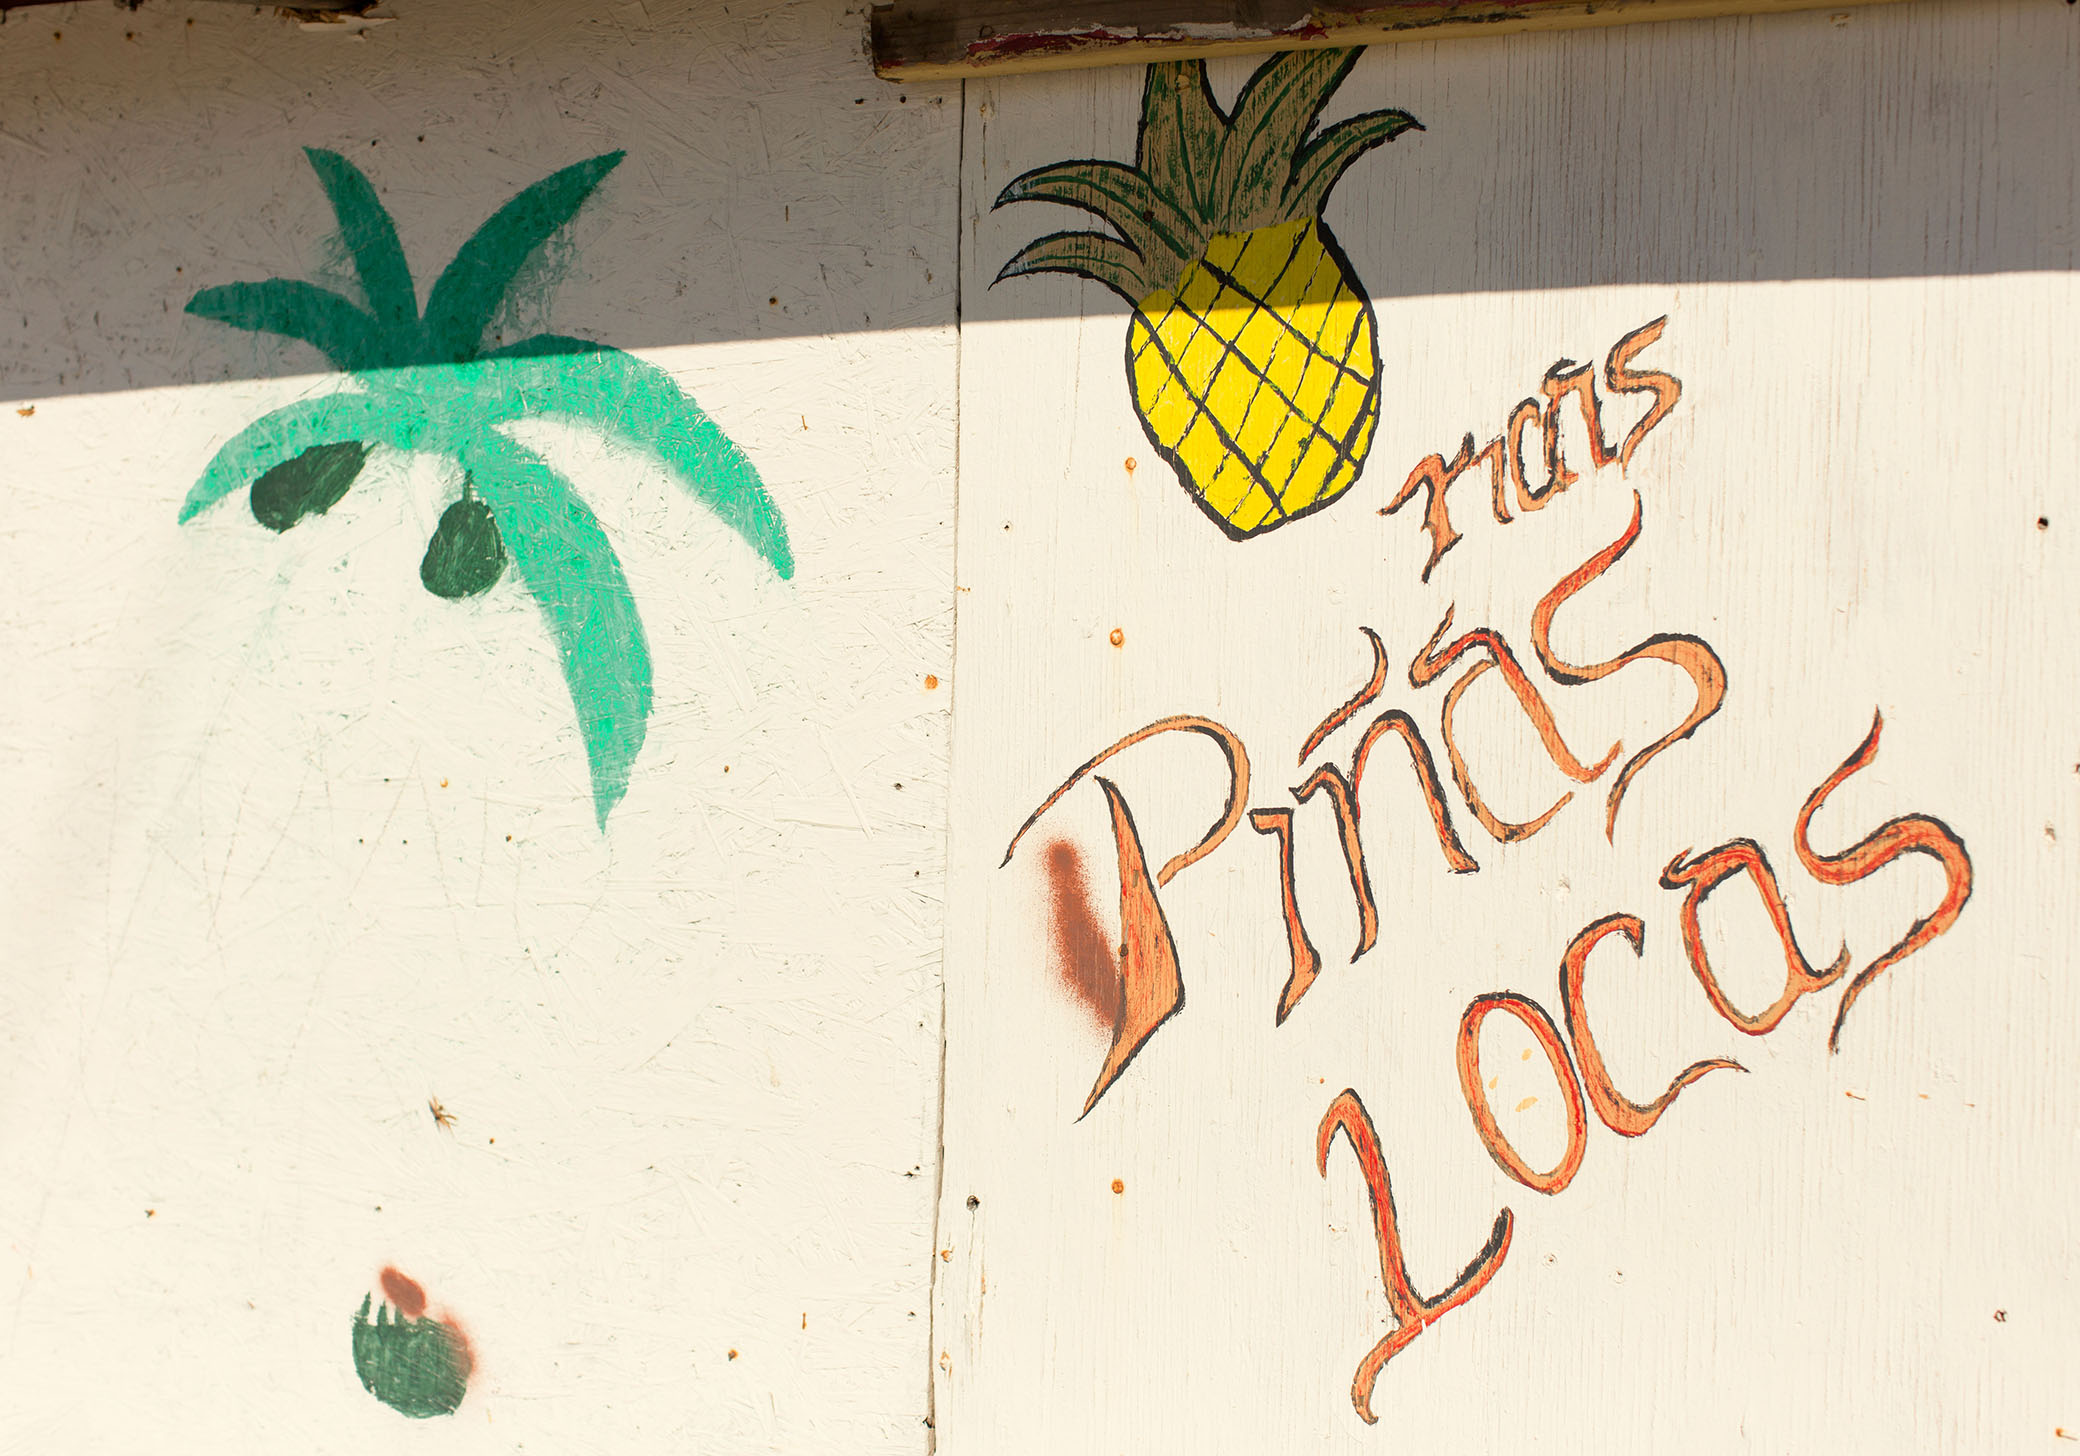 mas
Piñas
Locas